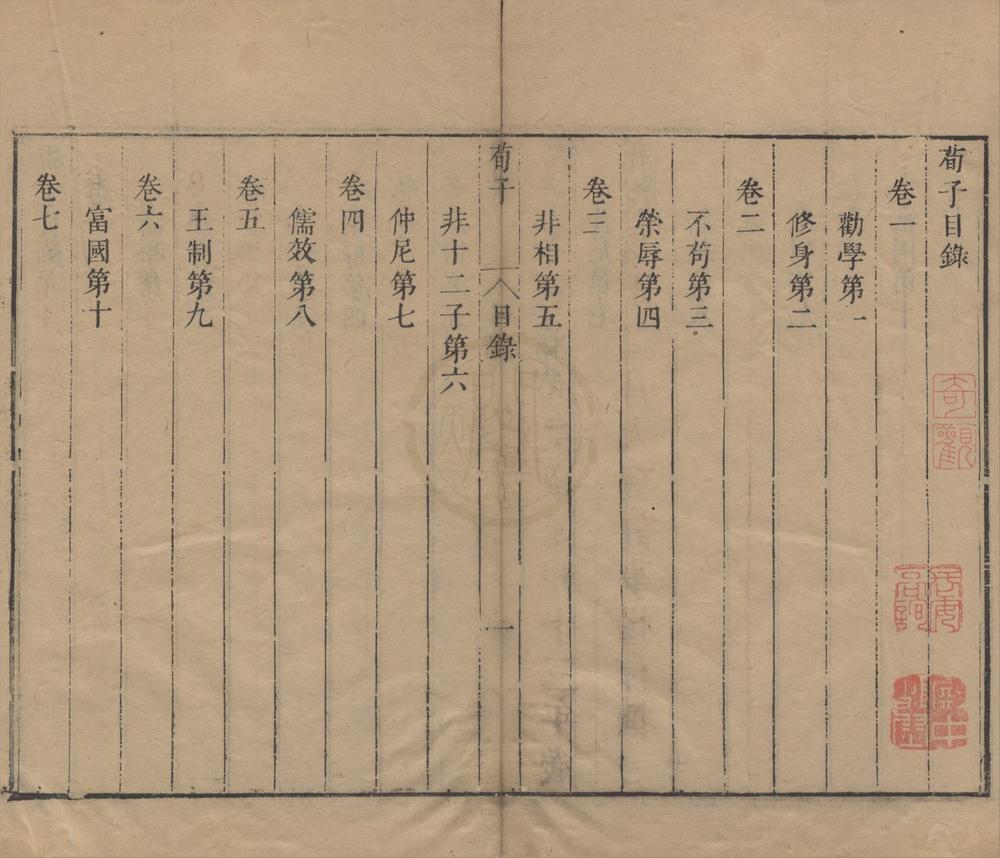 荀子目錄
卷一
勸學第一
修身第二
卷二
不苟第三
榮辱第四
卷三
非相第五
荀子
目錄
一
非十二子第六
仲尼第七
卷四
儒效第八
卷五
王制第九
卷六
富國第十
卷七
奇觀